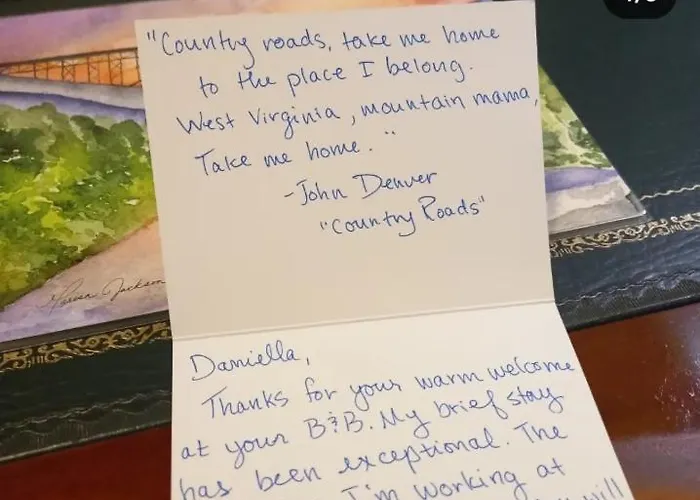 "Country roads, take me home
to the place I belong.
West Virginia, mountain mama,
Take me home."
-John Denver
"Country Roads"
Jackson
Daniella,
Thanks for your warm welcome
at your B&B. My brief stay
has been exceptional. The
I'm working at
will